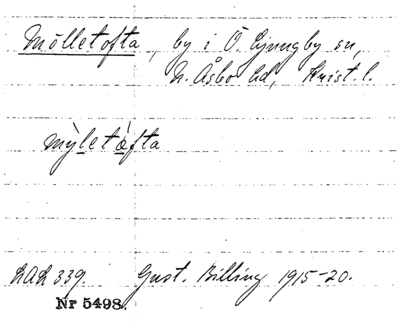 Mölletofta, by i Ö. Ljungby sn,
N. Åsbo hd, Krist. l.
mỳletǽfta
LAL 339. Gust. Billing 1915-20.
Nr 5498.